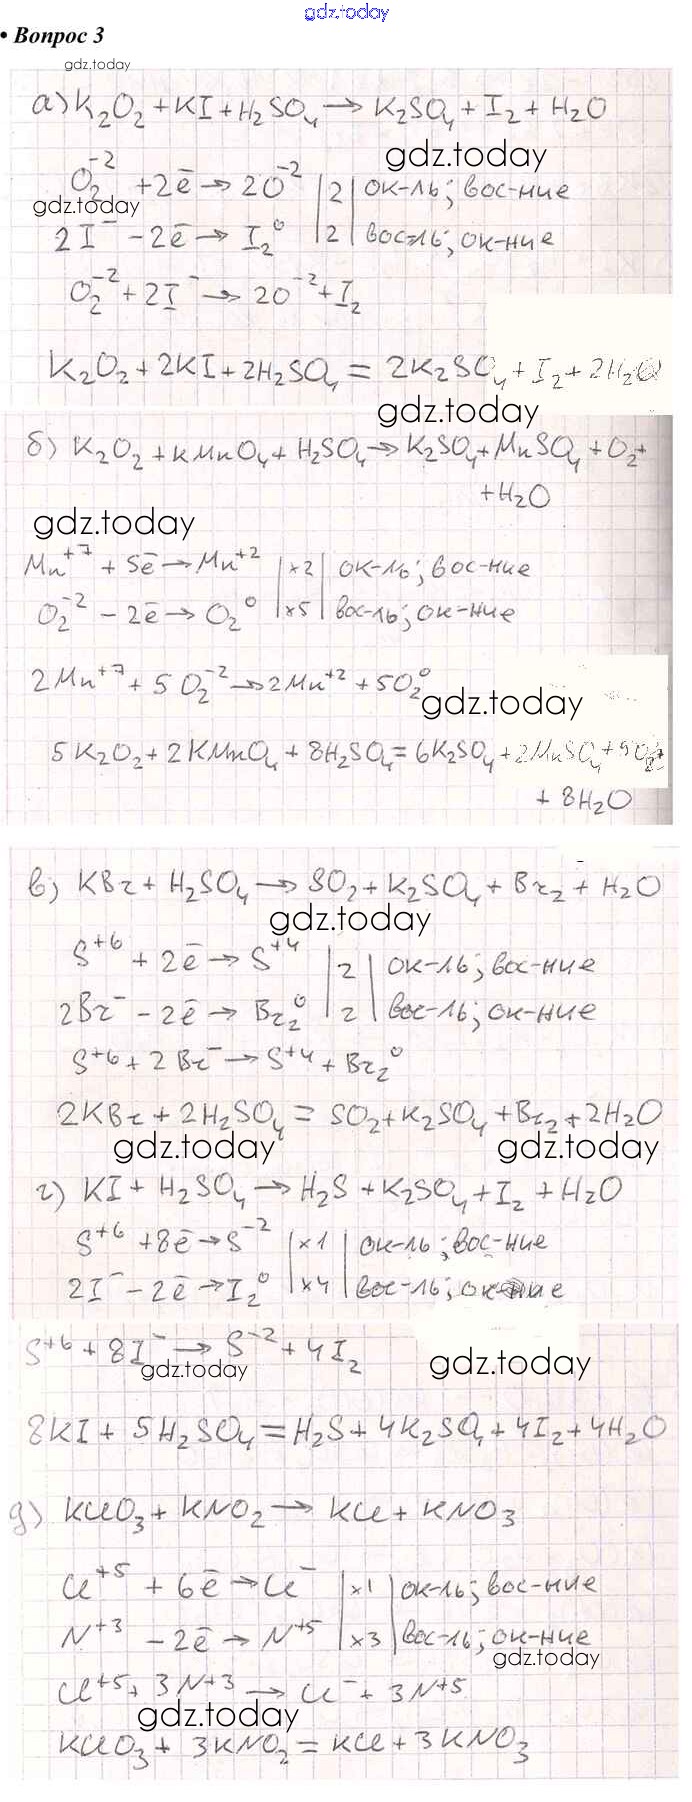 gdz.today
• Вопрос 3
gdz.today
а) K₂O₂ + KI + H₂SO₄ → K₂SO₄ + I₂ + H₂O
gdz.today
O₂⁻² + 2ē → 2O⁻² | 2 | ок-ль; вос-ние
gdz.today
2I⁻ - 2ē → I₂⁰ | 2 | вос-ль; ок-ние
O₂⁻² + 2I⁻ → 2O⁻² + I₂
K₂O₂ + 2KI + 2H₂SO₄ = 2K₂SO₄ + I₂ + 2H₂O
gdz.today
б) K₂O₂ + KMnO₄ + H₂SO₄ → K₂SO₄ + MnSO₄ + O₂ +
+ H₂O
gdz.today
Mn⁺⁷ + 5ē → Mn⁺² | ×2 | ок-ль; вос-ние
O₂⁻² - 2ē → O₂⁰ | ×5 | вос-ль; ок-ние
2Mn⁺⁷ + 5O₂⁻² → 2Mn⁺² + 5O₂⁰
gdz.today
5K₂O₂ + 2KMnO₄ + 8H₂SO₄ = 6K₂SO₄ + 2MnSO₄ + 5O₂ +
+ 8H₂O
в) KBr + H₂SO₄ → SO₂ + K₂SO₄ + Br₂ + H₂O
gdz.today
S⁺⁶ + 2ē → S⁺⁴ | 2 | ок-ль; вос-ние
2Br⁻ - 2ē → Br₂⁰ | 2 | вос-ль; ок-ние
S⁺⁶ + 2Br⁻ → S⁺⁴ + Br₂⁰
2KBr + 2H₂SO₄ = SO₂ + K₂SO₄ + Br₂ + 2H₂O
gdz.today gdz.today
г) KI + H₂SO₄ → H₂S + K₂SO₄ + I₂ + H₂O
S⁺⁶ + 8ē → S⁻² | ×1 | ок-ль; вос-ние
2I⁻ - 2ē → I₂⁰ | ×4 | вос-ль; ок-ние
S⁺⁶ + 8I⁻ → S⁻² + 4I₂
gdz.today gdz.today
8KI + 5H₂SO₄ = H₂S + 4K₂SO₄ + 4I₂ + 4H₂O
д) KClO₃ + KNO₂ → KCl + KNO₃
Cl⁺⁵ + 6ē → Cl⁻ | ×1 | ок-ль; вос-ние
N⁺³ - 2ē → N⁺⁵ | ×3 | вос-ль; ок-ние
gdz.today
Cl⁺⁵ + 3N⁺³ → Cl⁻ + 3N⁺⁵
gdz.today
KClO₃ + 3KNO₂ = KCl + 3KNO₃